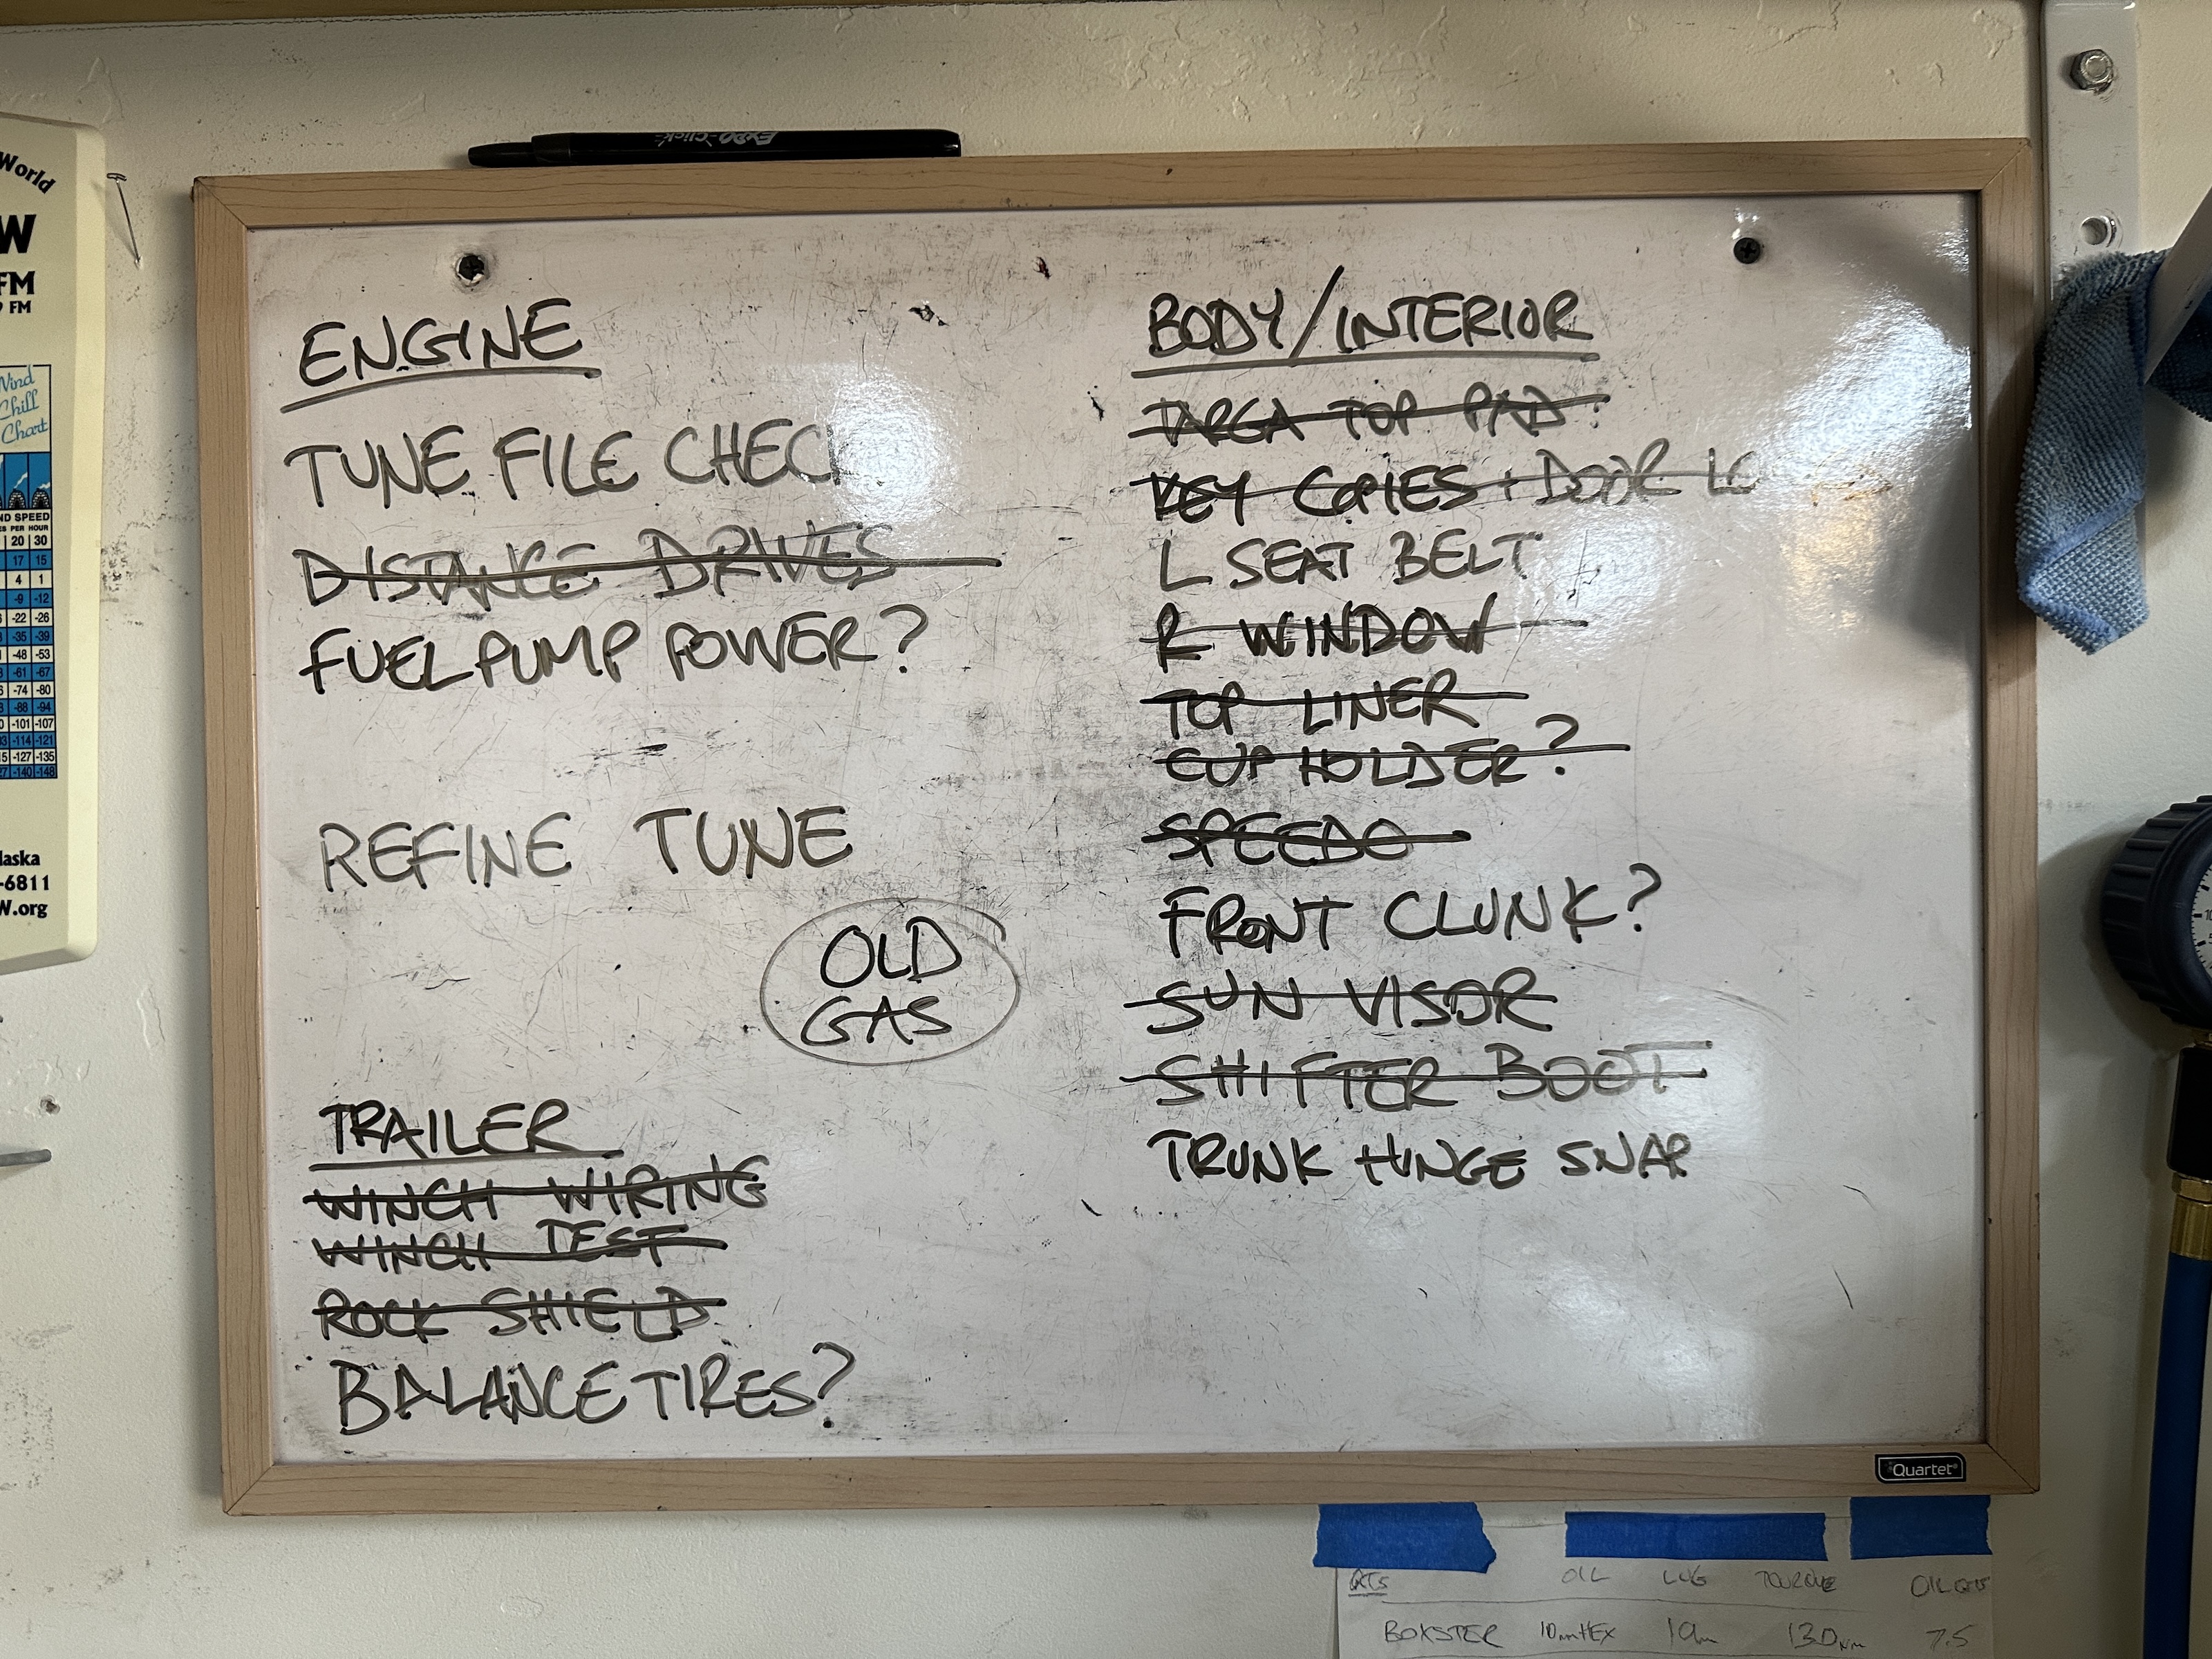 EXPO Click
World
W
FM
FM
Wind
Chill
Chart
ND SPEED
PER HOUR
20 30
17 15
4 1
-9 -12
-22 -26
-35 -39
-48 -53
-61 -67
-74 -80
-88 -94
-101 -107
-114 -121
-127 -135
-140 -148
laska
-6811
W.org
ENGINE
TUNE FILE CHECK
DISTANCE DRIVES
FUEL PUMP POWER?
REFINE TUNE
OLD
GAS
TRAILER
WINCH WIRING
WINCH TEST
ROCK SHIELD
BALANCE TIRES?
BODY/INTERIOR
TARGA TOP PAD
KEY COPIES + DOOR LO
L SEAT BELT
R WINDOW
TOP LINER
CUP HOLDER?
SPEEDO
FRONT CLUNK?
SUN VISOR
SHIFTER BOOT
TRUNK HINGE SNAP
Quartet
QTS OIL LUG TORQUE OIL QTS
BOXSTER 10mm HEX 19m 130Nm 7.5